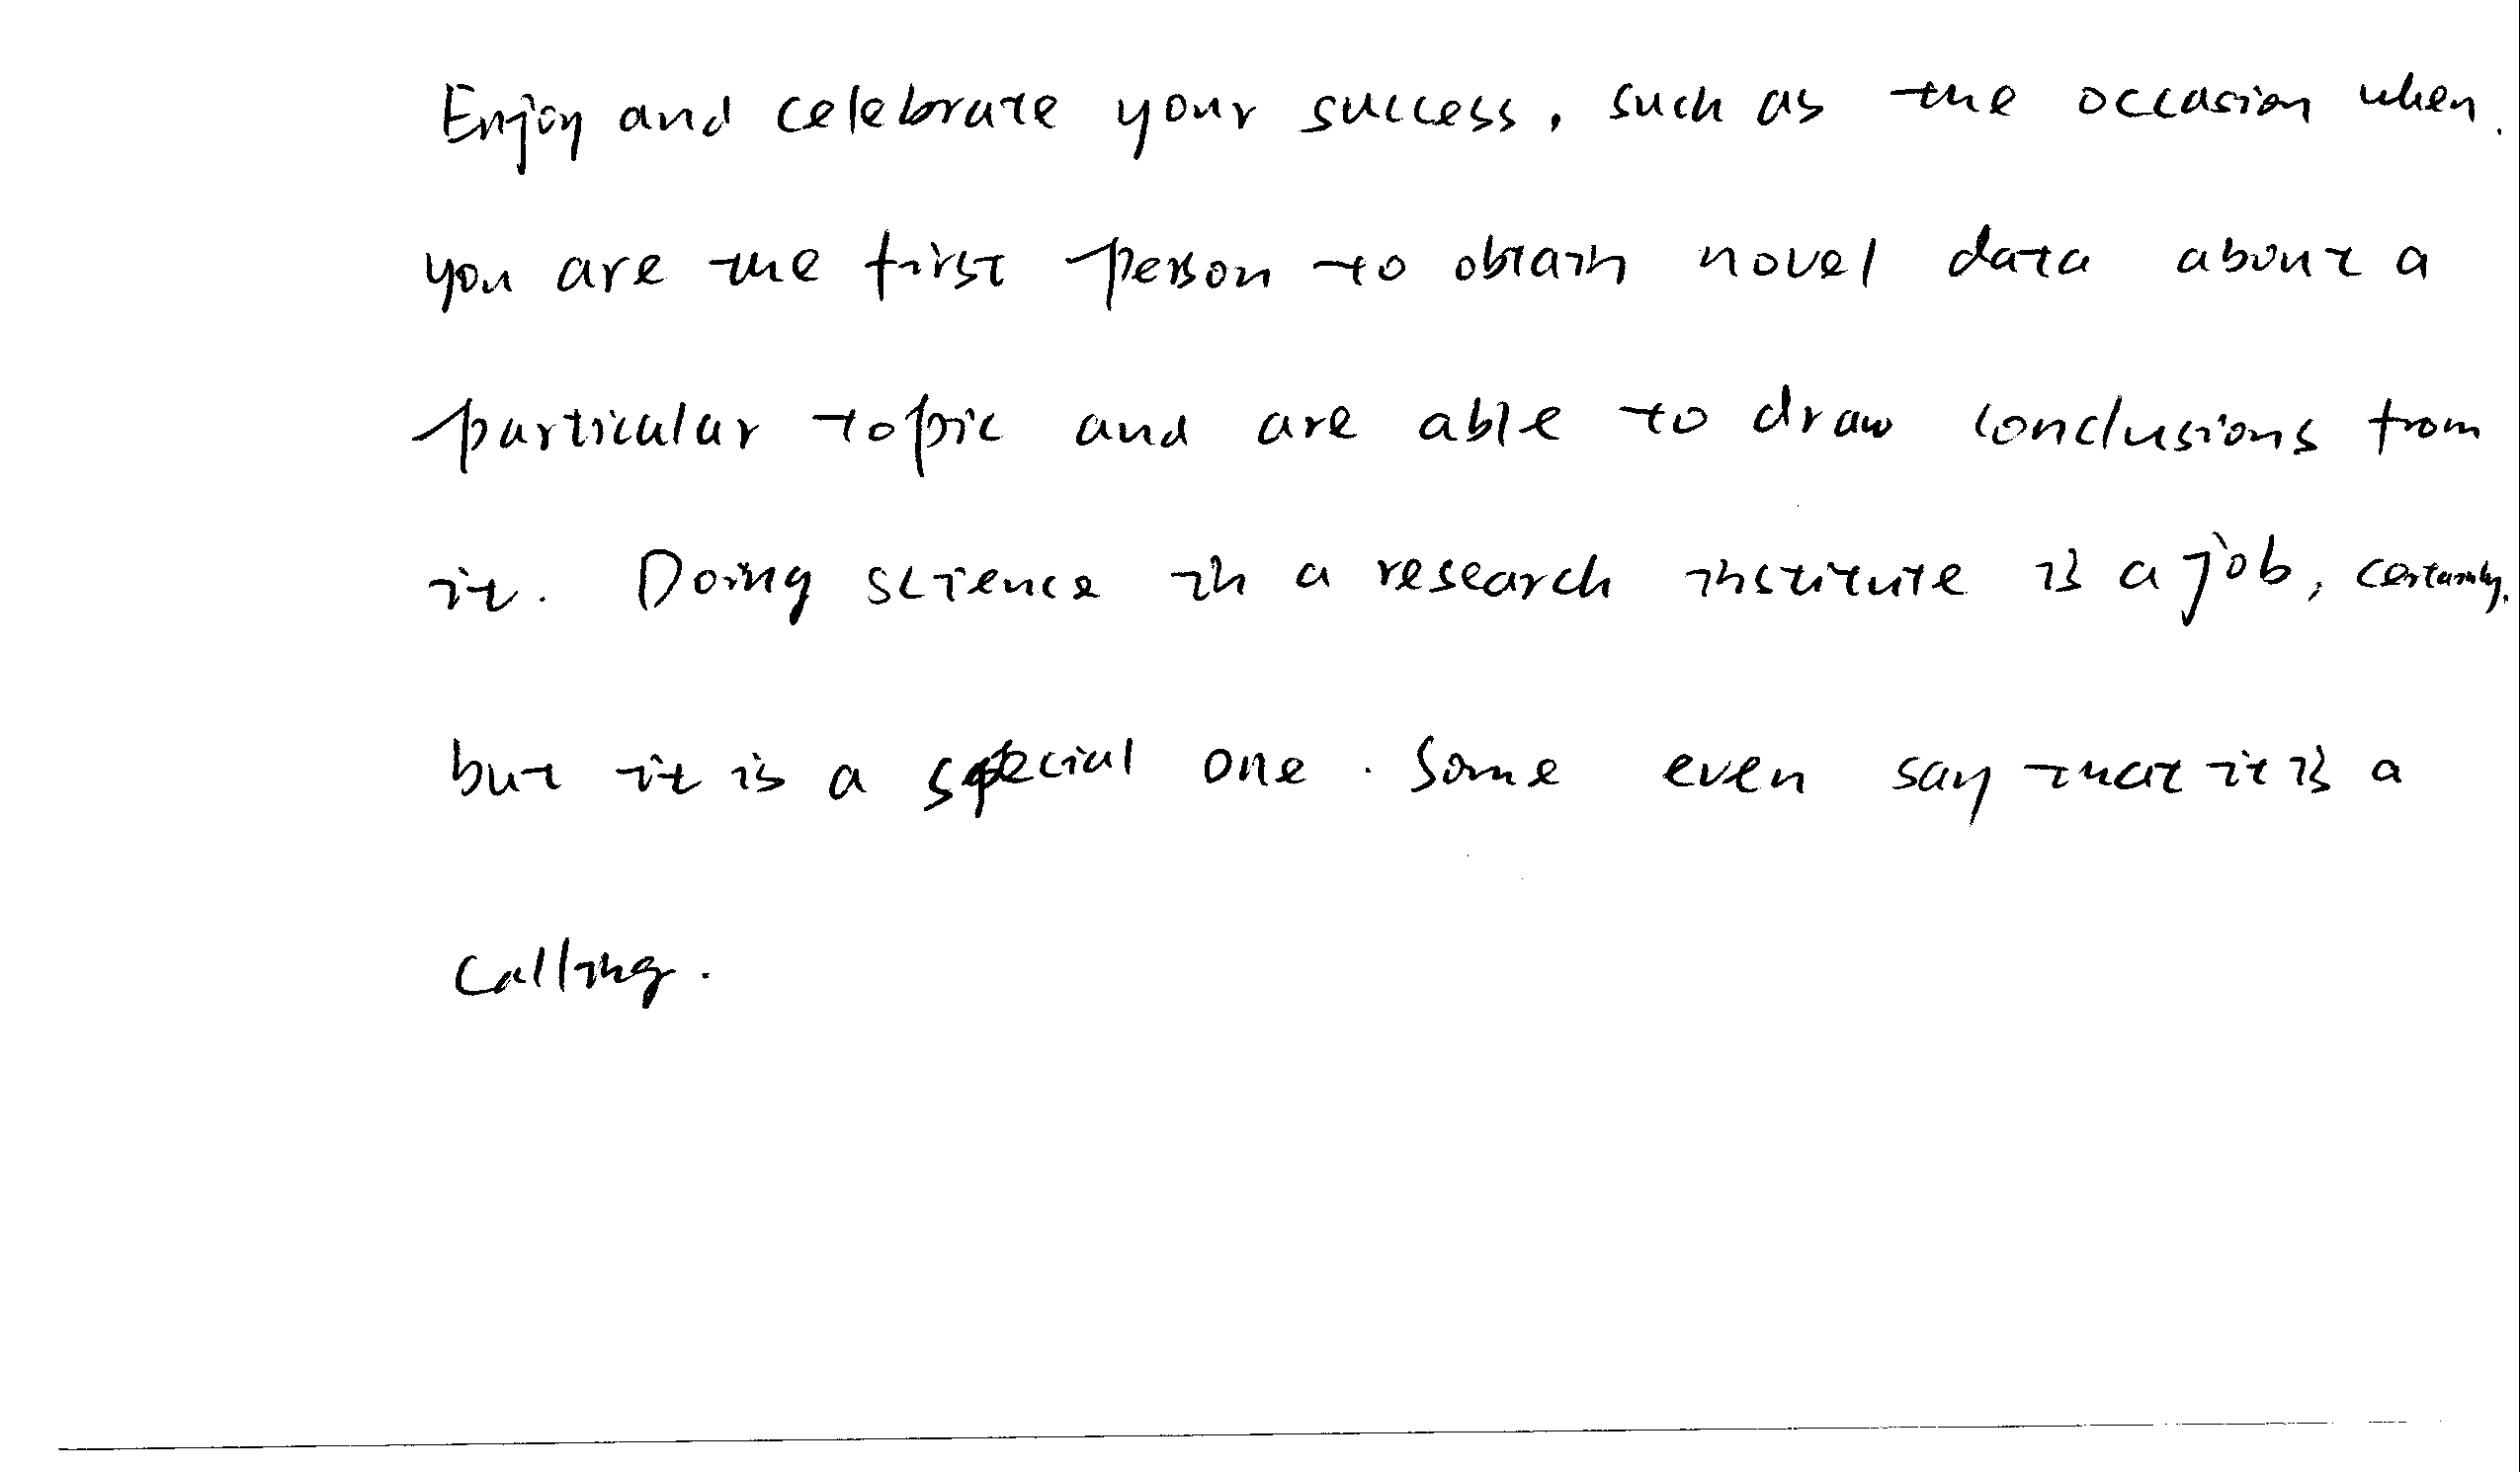 Enjoy and celebrate your success, such as the occasion when
you are the first person to obtain novel data about a
particular topic and are able to draw conclusions from
it. Doing science in a research institute is a job, certainly,
but it is a special one. Some even say that it is a
calling.